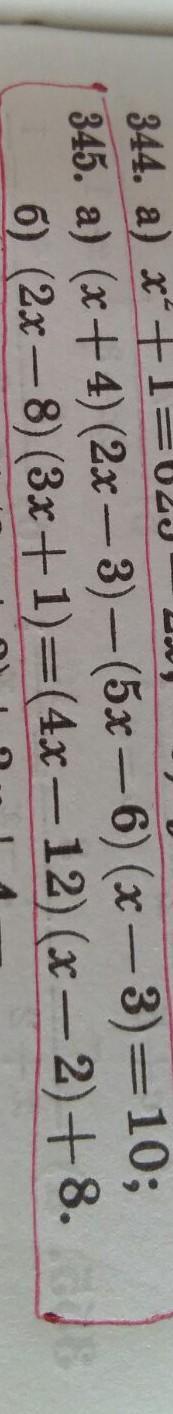 344. а) x² + 1 = 625 — 2x;
345. а) (x + 4) (2x — 3) — (5x — 6) (x — 3) = 10;
б) (2x — 8) (3x + 1) = (4x — 12) (x — 2) + 8.